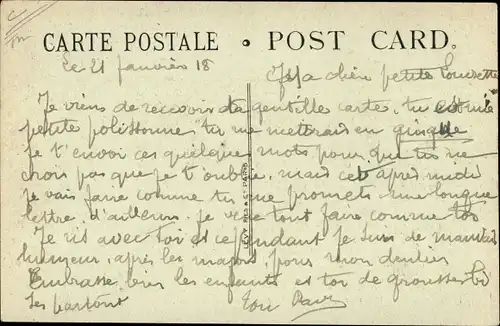 CARTE POSTALE • POST CARD.
Le 21 Janvier 18
Ma chère petite Louisette
Je viens de recevoir ta gentille carte, tu es une
petite polissonne tu me mettrais en
je t'envoi ces quelques mots pour que tu ne
crois pas que je t'oublie, mais cet après midi
je vais faire comme tu me promets une longue
lettre, d'ailleurs je veux tout faire comme toi
Je ris avec toi et cependant je suis de mauvais
humeur, après les
Embrasse bien les enfants et toi de grosses bi
ses partout Ton
LEVY FILS & Cie PARIS